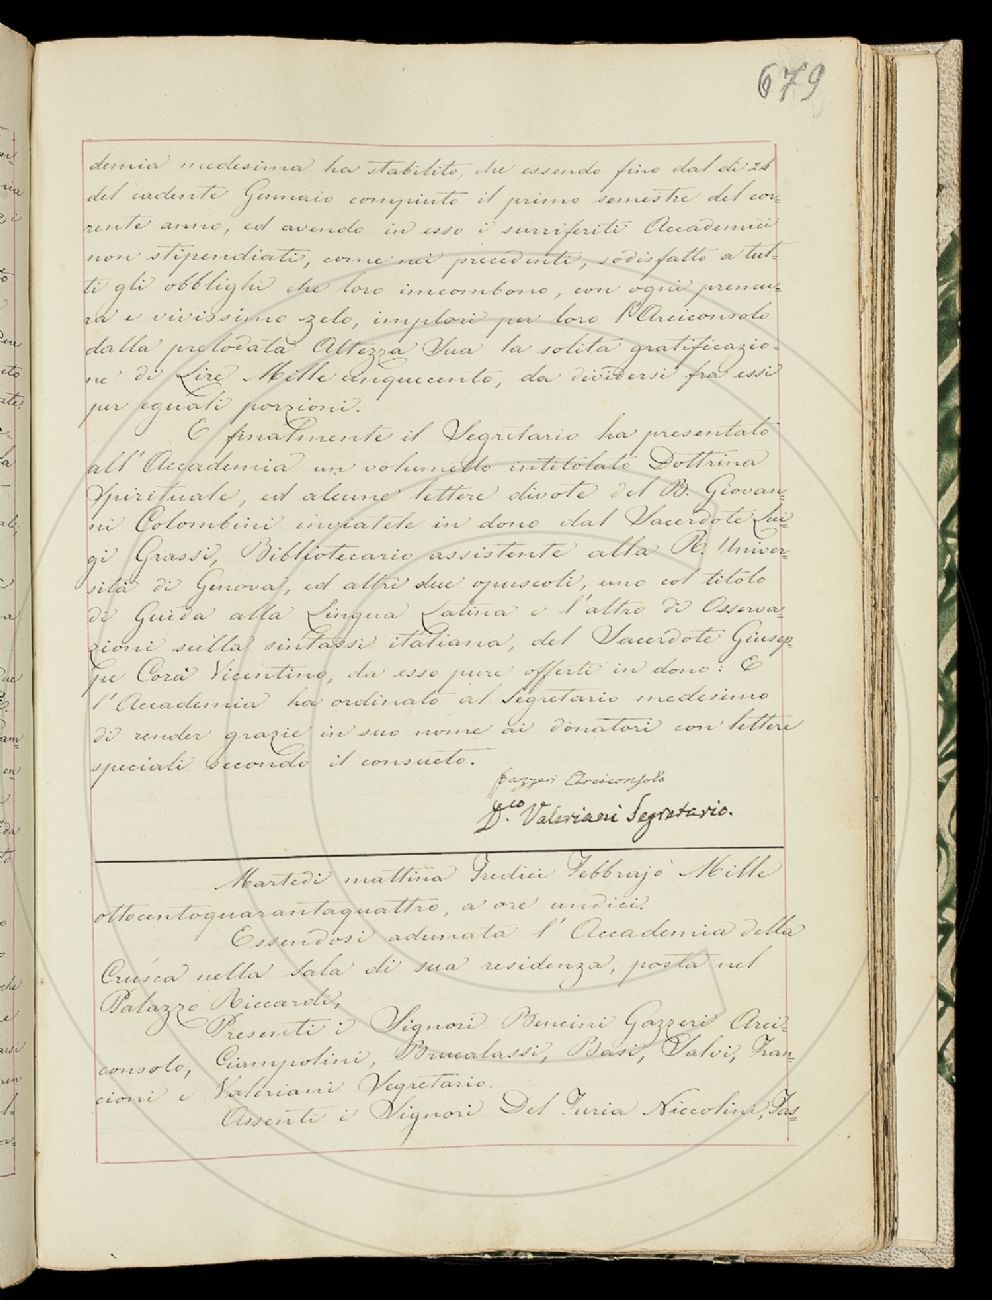 679
demia medesima ha stabilito, che essendo fino dal dì 24
del cadente Gennaio compiuto il primo semestre del cor=
rente anno, ed avendo in esso i surriferiti Accademici
non stipendiati, come nei precedenti, sodisfatto a tut=
ti gli obblighi che loro incombono, con ogni premu=
ra e vivissimo zelo, implori per loro l'Arciconsolo
dalla prelodata Altezza Sua la solita gratificazio=
ne di Lire Mille cinquecento, da dividersi fra essi
per eguali porzioni.
E finalmente il Segretario ha presentato
all'Accademia un volumetto intitolato Dottrina
Spirituale, ed alcune lettere divote del B. Giovan=
ni Colombini inviatele in dono dal Sacerdote Lui=
gi Grassi, Bibliotecario assistente alla R. Univer=
sità di Genova, ed altri due opuscoli, uno col titolo
di Guida alla Lingua Latina e l'altro di Osserva=
zioni sulla sintassi italiana, del Sacerdote Giusep=
pe Corà Vicentino, da esso pure offerti in dono: E
l'Accademia ha ordinato al Segretario medesimo
di render grazie in suo nome ai donatori con lettere
speciali secondo il consueto.
Gazzeri Arciconsolo
D.co Valeriani Segretario.
Martedì mattina Tredici Febbrajo Mille
ottocentoquarantaquattro, a ore undici.
Essendosi adunata l'Accademia della
Crusca nella Sala di sua residenza, posta nel
Palazzo Riccardi,
Presenti i Signori Bencini Gazzeri Arci=
consolo, Ciampolini, Brucalassi, Basi, Salvi, Fran=
cioni e Valeriani Segretario.
Assenti i Signori Del Furia Niccolini, Tas=